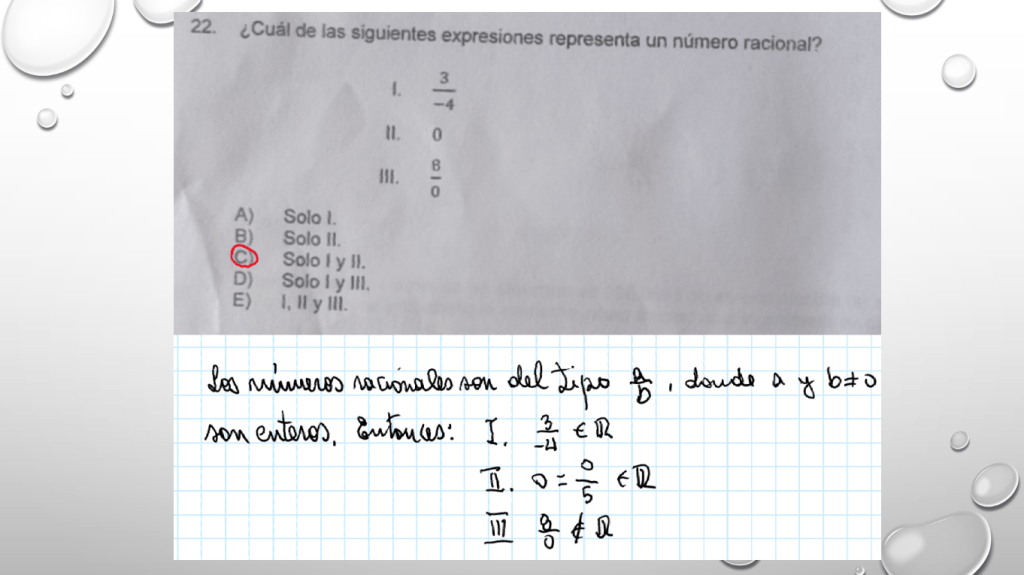 22. ¿Cuál de las siguientes expresiones representa un número racional?
I. 3/-4
II. 0
III. 8/0
A) Solo I.
B) Solo II.
C) Solo I y II.
D) Solo I y III.
E) I, II y III.
Los números racionales son del tipo a/b, donde a y b≠0
son enteros. Entonces: I. 3/-4 ∈ ℝ
II. 0 = 0/5 ∈ ℝ
III 8/0 ∉ ℝ